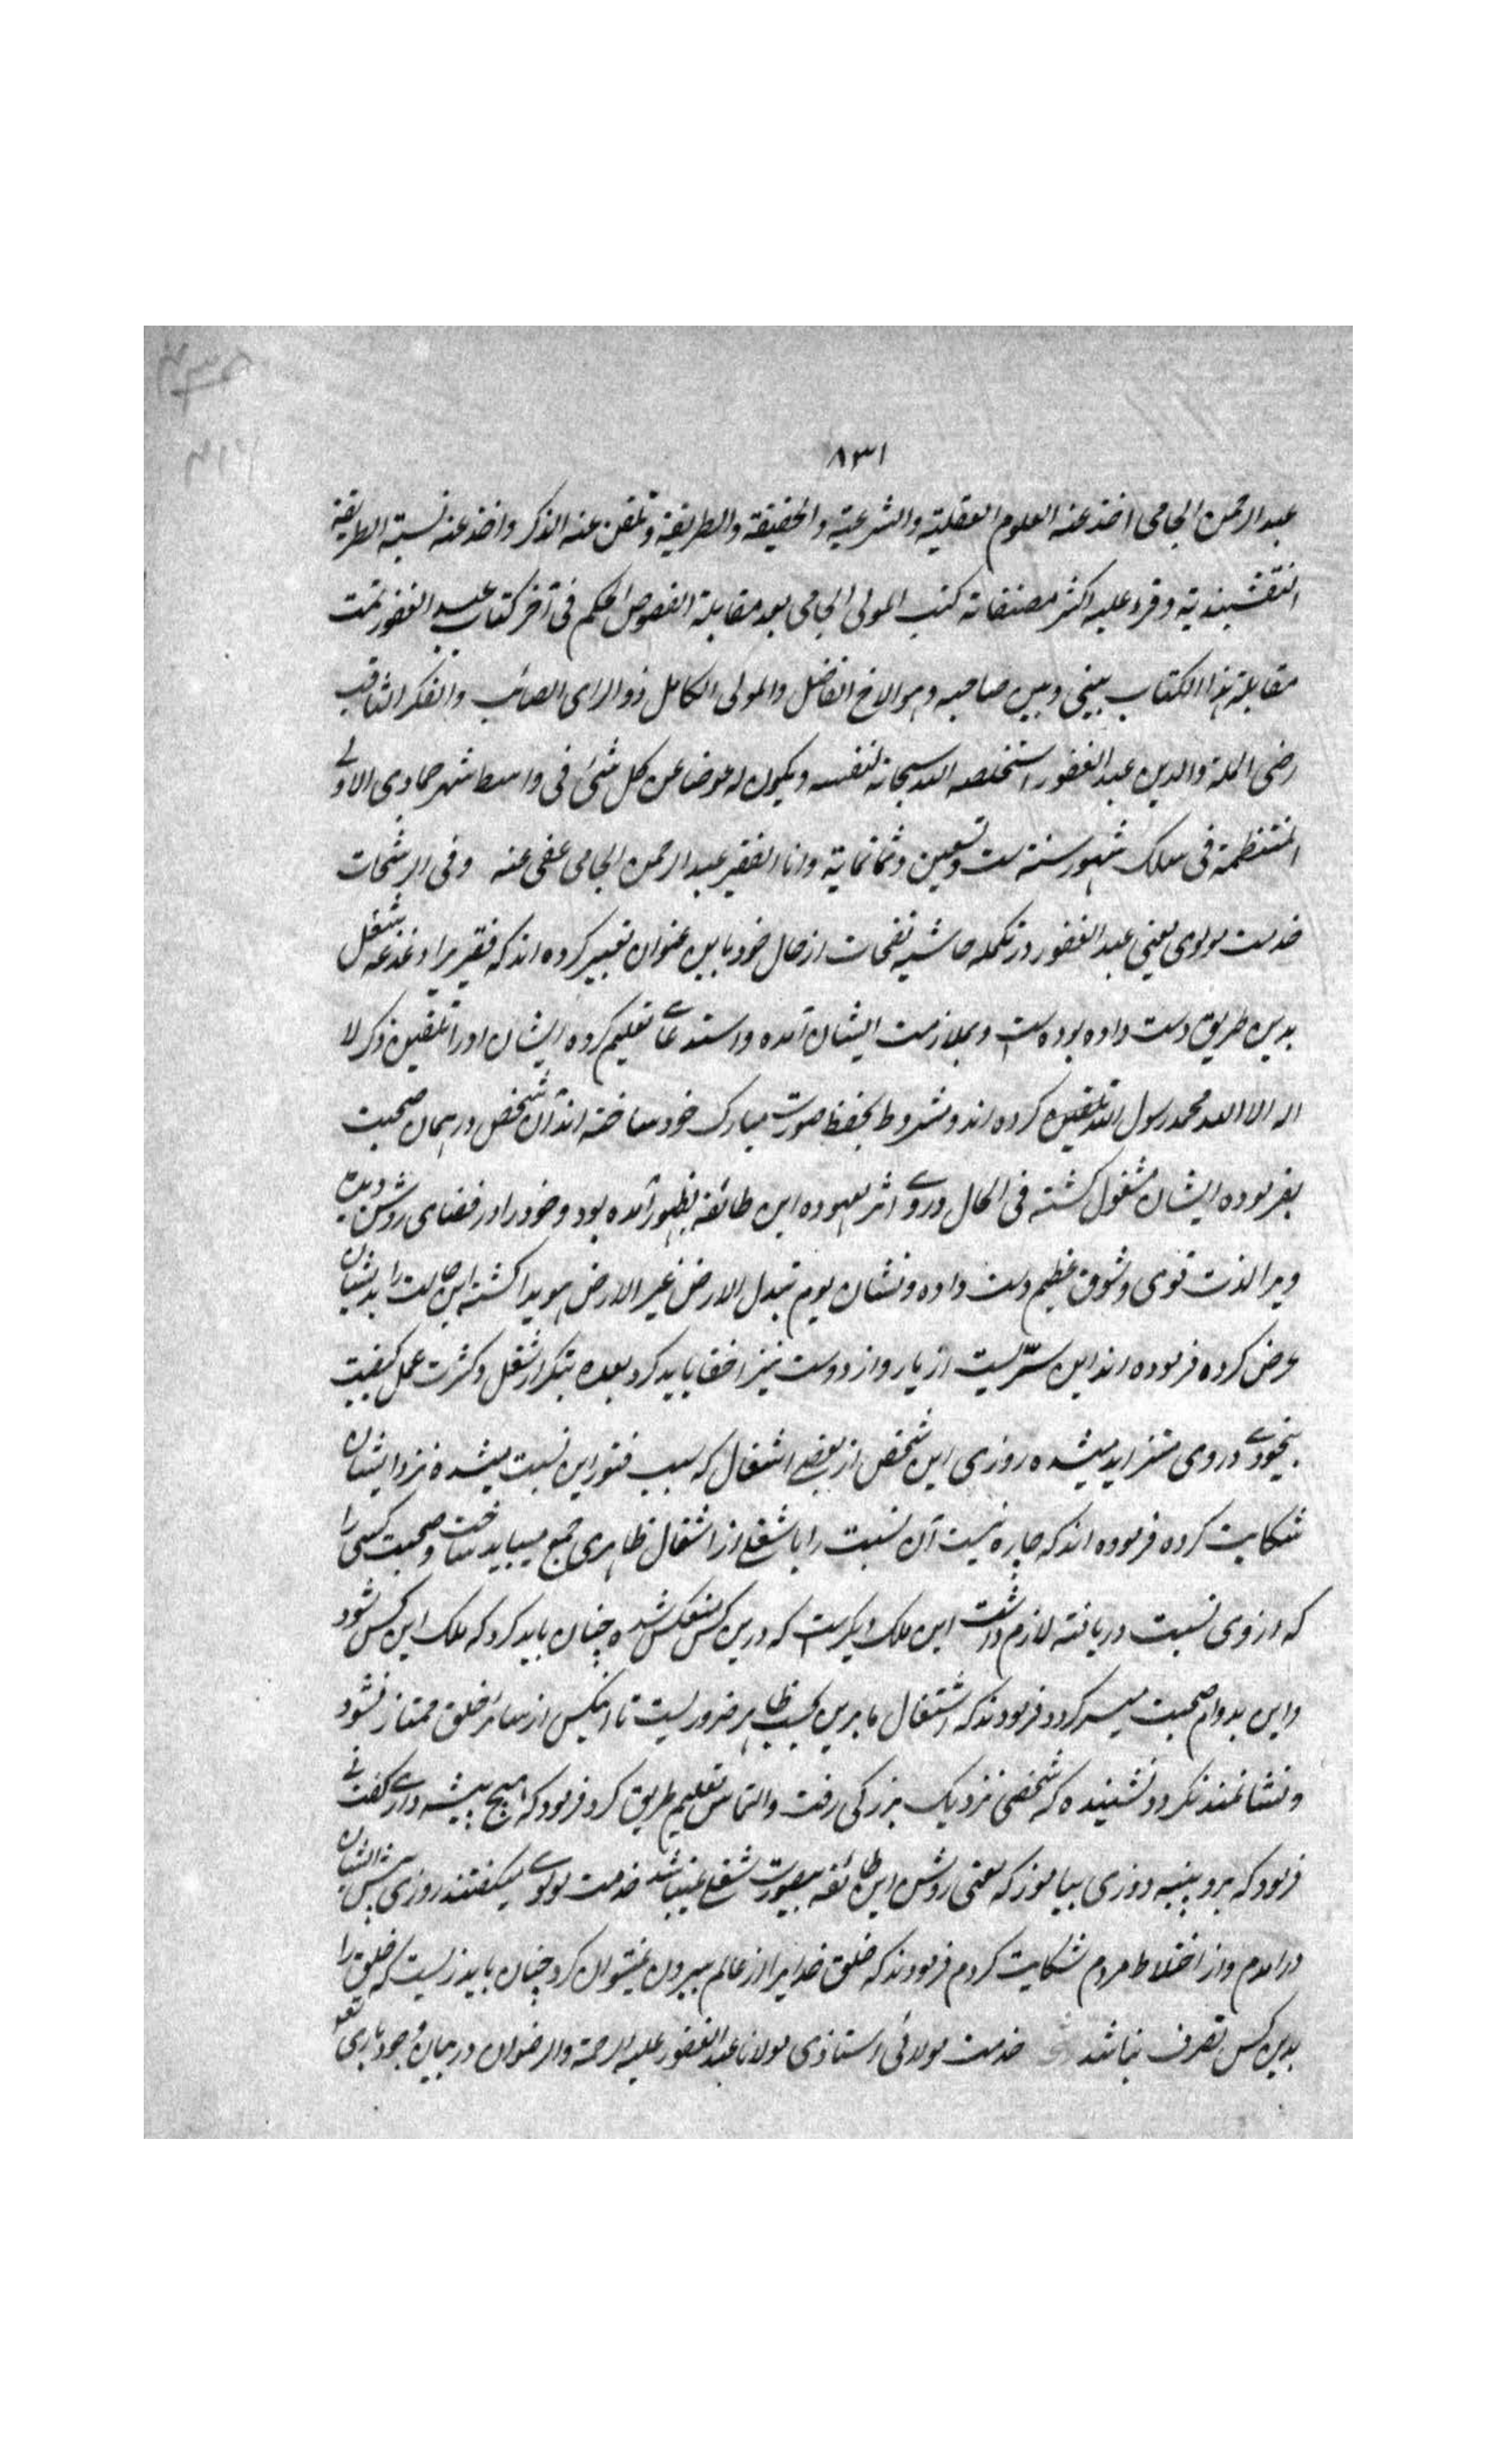 ۸۳۱
عبد الرحمن الجامی اخذ عنه العلوم العقلیة والشرعیة والحقیقة والطریقة و تلقن عنه الذکر واخذ عنه نسبة الطریقة
النقشبندیة و قرء علیه اکثر مصنفاته کتب المولی الجامی بعد مقابلة الفصوص الحکم فی آخر کتاب عبد الغفور تمت
مقابلة هذا الکتاب بینی و بین صاحبه و هو الاخ الفاضل والمولی الکامل ذو الرای الصائب والفکر الثاقب
رضی الملة والدین عبد الغفور استخلصه الله سبحانه لنفسه و یکون له عوضا عن کل شئ فی واسط شهر جمادی الاولی
المنتظمة فی سلک شهور سنة ست و تسعین و ثمانمایة وانا الفقیر عبد الرحمن الجامی عفی عنه وفی الرشحات
خدمت مولوی یعنی عبد الغفور در تکمله حاشیه نفحات از حال خود باین عنوان تعبیر کرده اند که فقیریرا دغدغه شغل
بدین طریق دست داده بوده است و بملازمت ایشان آمده واستدعای تعلیم کرده ایشان اورا تلقین ذکر لا
اله الا الله محمد رسول الله تلقین کرده اند و مشروط بحفظ صورت مبارک خود ساخته اند آن شخص در همان صحبت
بفرموده ایشان مشغول کشته فی الحال دروی اثر معهوده این طائفه بظهور آمده بود و خود را در فضای روشن دیده
ویرا لذت قوی و شوق عظیم دست داده و نشان یوم تبدل الارض غیر الارض هویدا کشته این حالت را بدیشان
عرض کرده فرموده اند این سرّیست از یار و از دوست نیز اخفا باید کرد بعده بتکرار شغل و کثرت عمل کیفیت
بیخودی دروی متزاید میشده روزی این شخص از بعضی اشغال که سبب فتور این نسبت میشده نزد ایشان
شکایت کرده فرموده اند که چاره نیست آن نسبت را با شغلی از اشغال ظاهری جمع میباید ساخت و صحبت کسی را
که از وی نسبت دریافته لازم داشت این ملک دیکریست که درین کس منعکس شده چنان باید کرد که ملک این کس شود
و این بدوام صحبت میسر کردد فرمودند که اشتغال ما برین بحسب ظاهر ضروریست تا اینکس از سائر خلق ممتاز نشود
و نشانمند نکردد نشنیده که شخصی نزدیک بزرکی رفت والتماس تعلیم طریق کرد فرمود که هیچ پیشه داری کفت نی
فرمود که برو پنبه دوزی بیاموز که یعنی روش این طائفه بصورت شغلی نمیباشد خدمت مولوی میکفتند روزی پیش ایشان
درامدم و از اختلاط مردم شکایت کردم فرمودند که خلق خدایرا از عالم بیرون نمیتوان کرد چنان باید زیست که خلق را
بدین کس تصرف نباشد خدمت مولائی استاذی مولانا عبد الغفور علیه الرحمة والرضوان در بیان وجود باری تعه